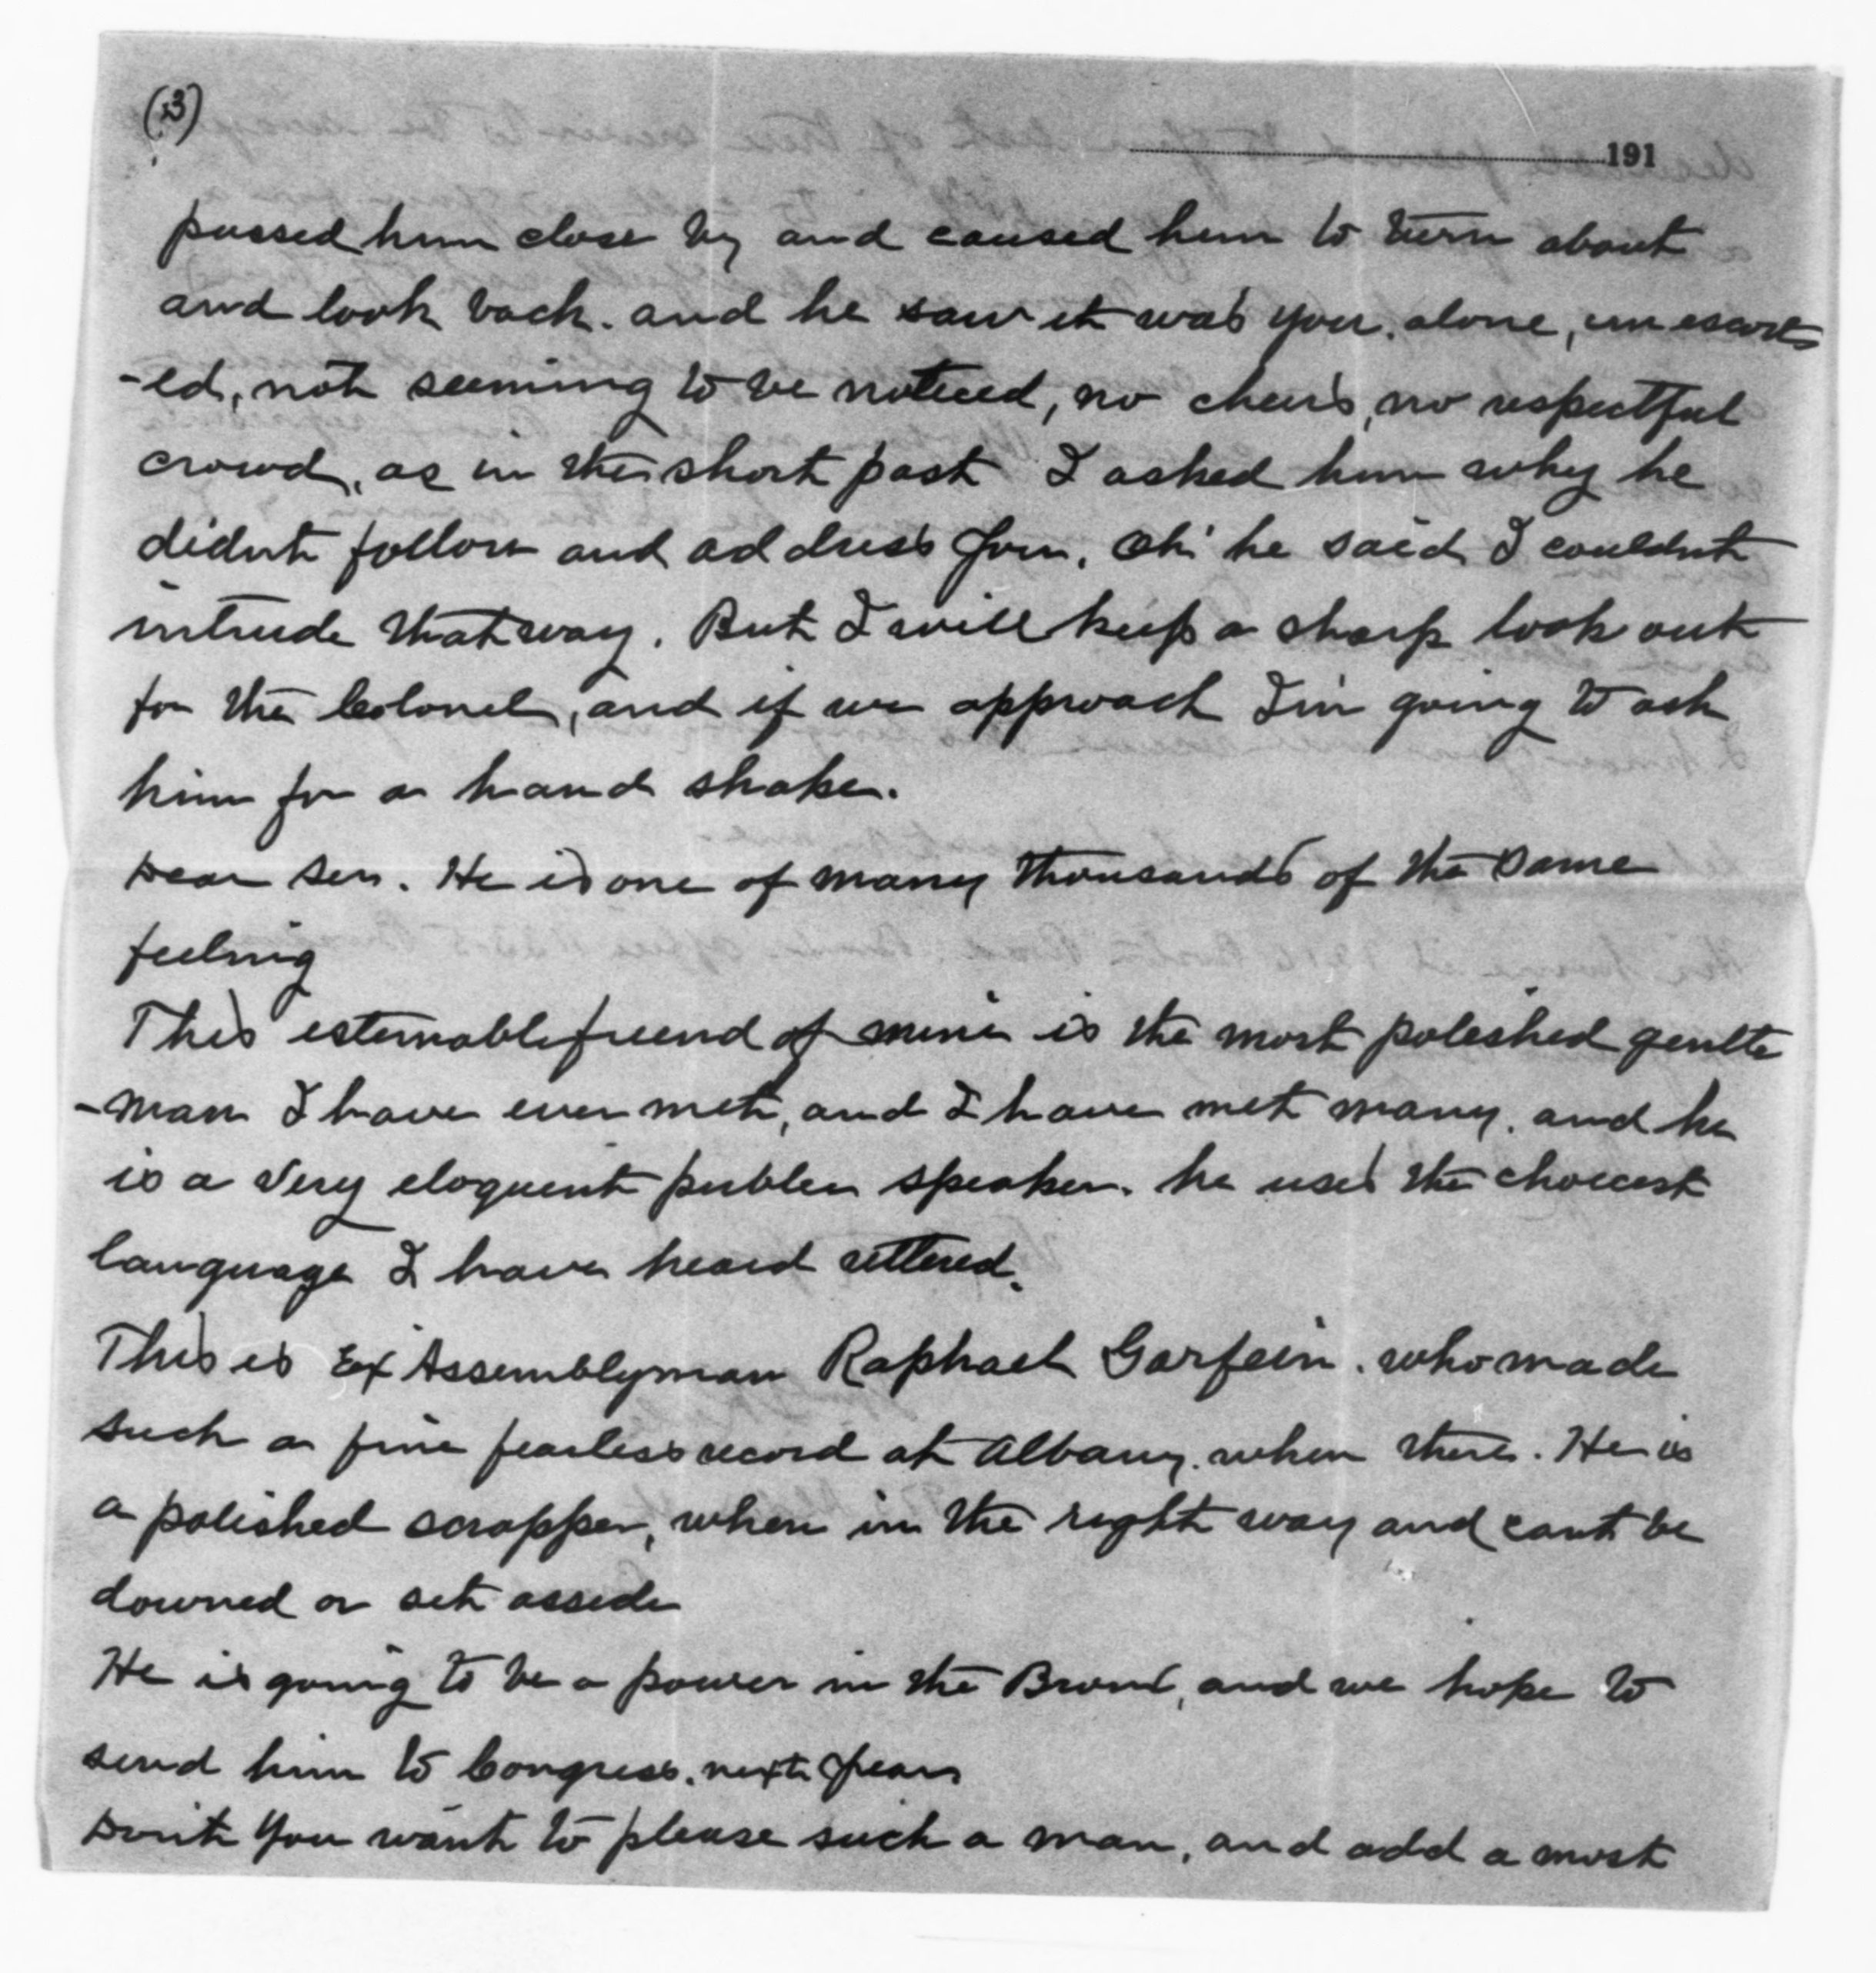 (3)
191
passed him close by and caused him to turn about
and look back. and he saw it was you. alone, unescort
-ed, not seeming to be noticed, no cheers, no respectful
crowd, as in the short past I asked him why he
didnt follow and address you. Oh' he said I couldnt
intrude that way. But I will keep a sharp look out
for the Colonel, and if we approach I'm going to ask
him for a hand shake.
Dear Sir. He is one of many thousands of the same
feeling
This estemable friend of mine is the most polished gentle
-man I have ever met, and I have met many. and he
is a very eloquent public speaker. he uses the choicest
language I have heard uttered.
This is Ex Assemblyman Raphael Garfein. who made
such a fine fearless record at Albany. when there. He is
a polished scrapper, when in the right way and cant be
downed or set asside
He is going to be a power in the Bronx, and we hope to
send him to Congress. next year
Don't you want to please such a man, and add a most